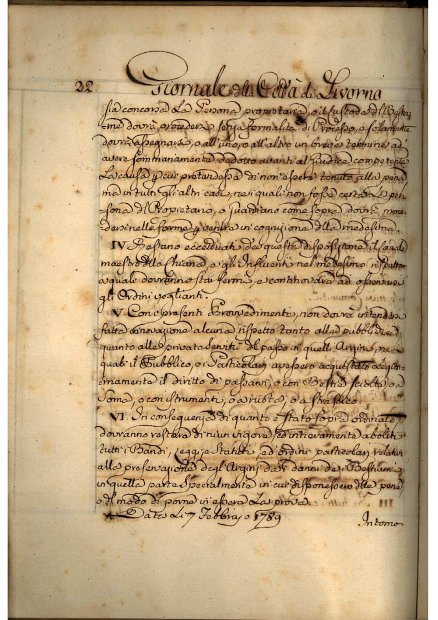 22. Giornale della Città di Livorno
sia concorsa la Persona proprietaria, o il Custode del Bestia-
me dovrà procedere senza formalità di Processo, e solamente
dovrà assegnarsi, o all'uno, o all'altro un breve termine ad
avere sommariamente dedotto avanti al Giudice competente
la causa per cui pretendesse di non essere tenuto alla pena
ma in tutti gli altri casi, nei quali non fosse certa la per-
sona del Proprietario, o Guardiano come sopra dovrà proce-
dersi nelle forme, e venire in cognizione della medesima.
IV. Restano eccettuati da questa disposizione il
maestro della Chiana e gl'Influenti nel medesimo rispetto
a quale dovranno star ferme, e continovare ad osservarsi
gli Ordini veglianti.
V. Con i presenti Provvedimenti, non dovrà intendersi
fatta innovazione alcuna rispetto tanto alle pubbliche,
quanto alle private servitù del passo in quelli Argini, ne
quali il Pubblico, o i Particolari avessero acquistato legitti-
mamente il diritto di passarvi, o con Bestie sciolte, o
Soma, o con istrumenti, a ruota, e a strascico.
VI. In conseguenza di quanto è stato sopra ordinato
dovranno restare di niun vigore, ed intieramente aboliti
tutti i Bandi, Leggi, e Statuti, ed ordini particolari relativi
alla preservazione degl'Argini da danni de Bestiami
in quella parte specialmente in cui disponessero delle pene
o del modo di porne in essere la prova.
Dato li 7 Febbraio 1789
Intorno